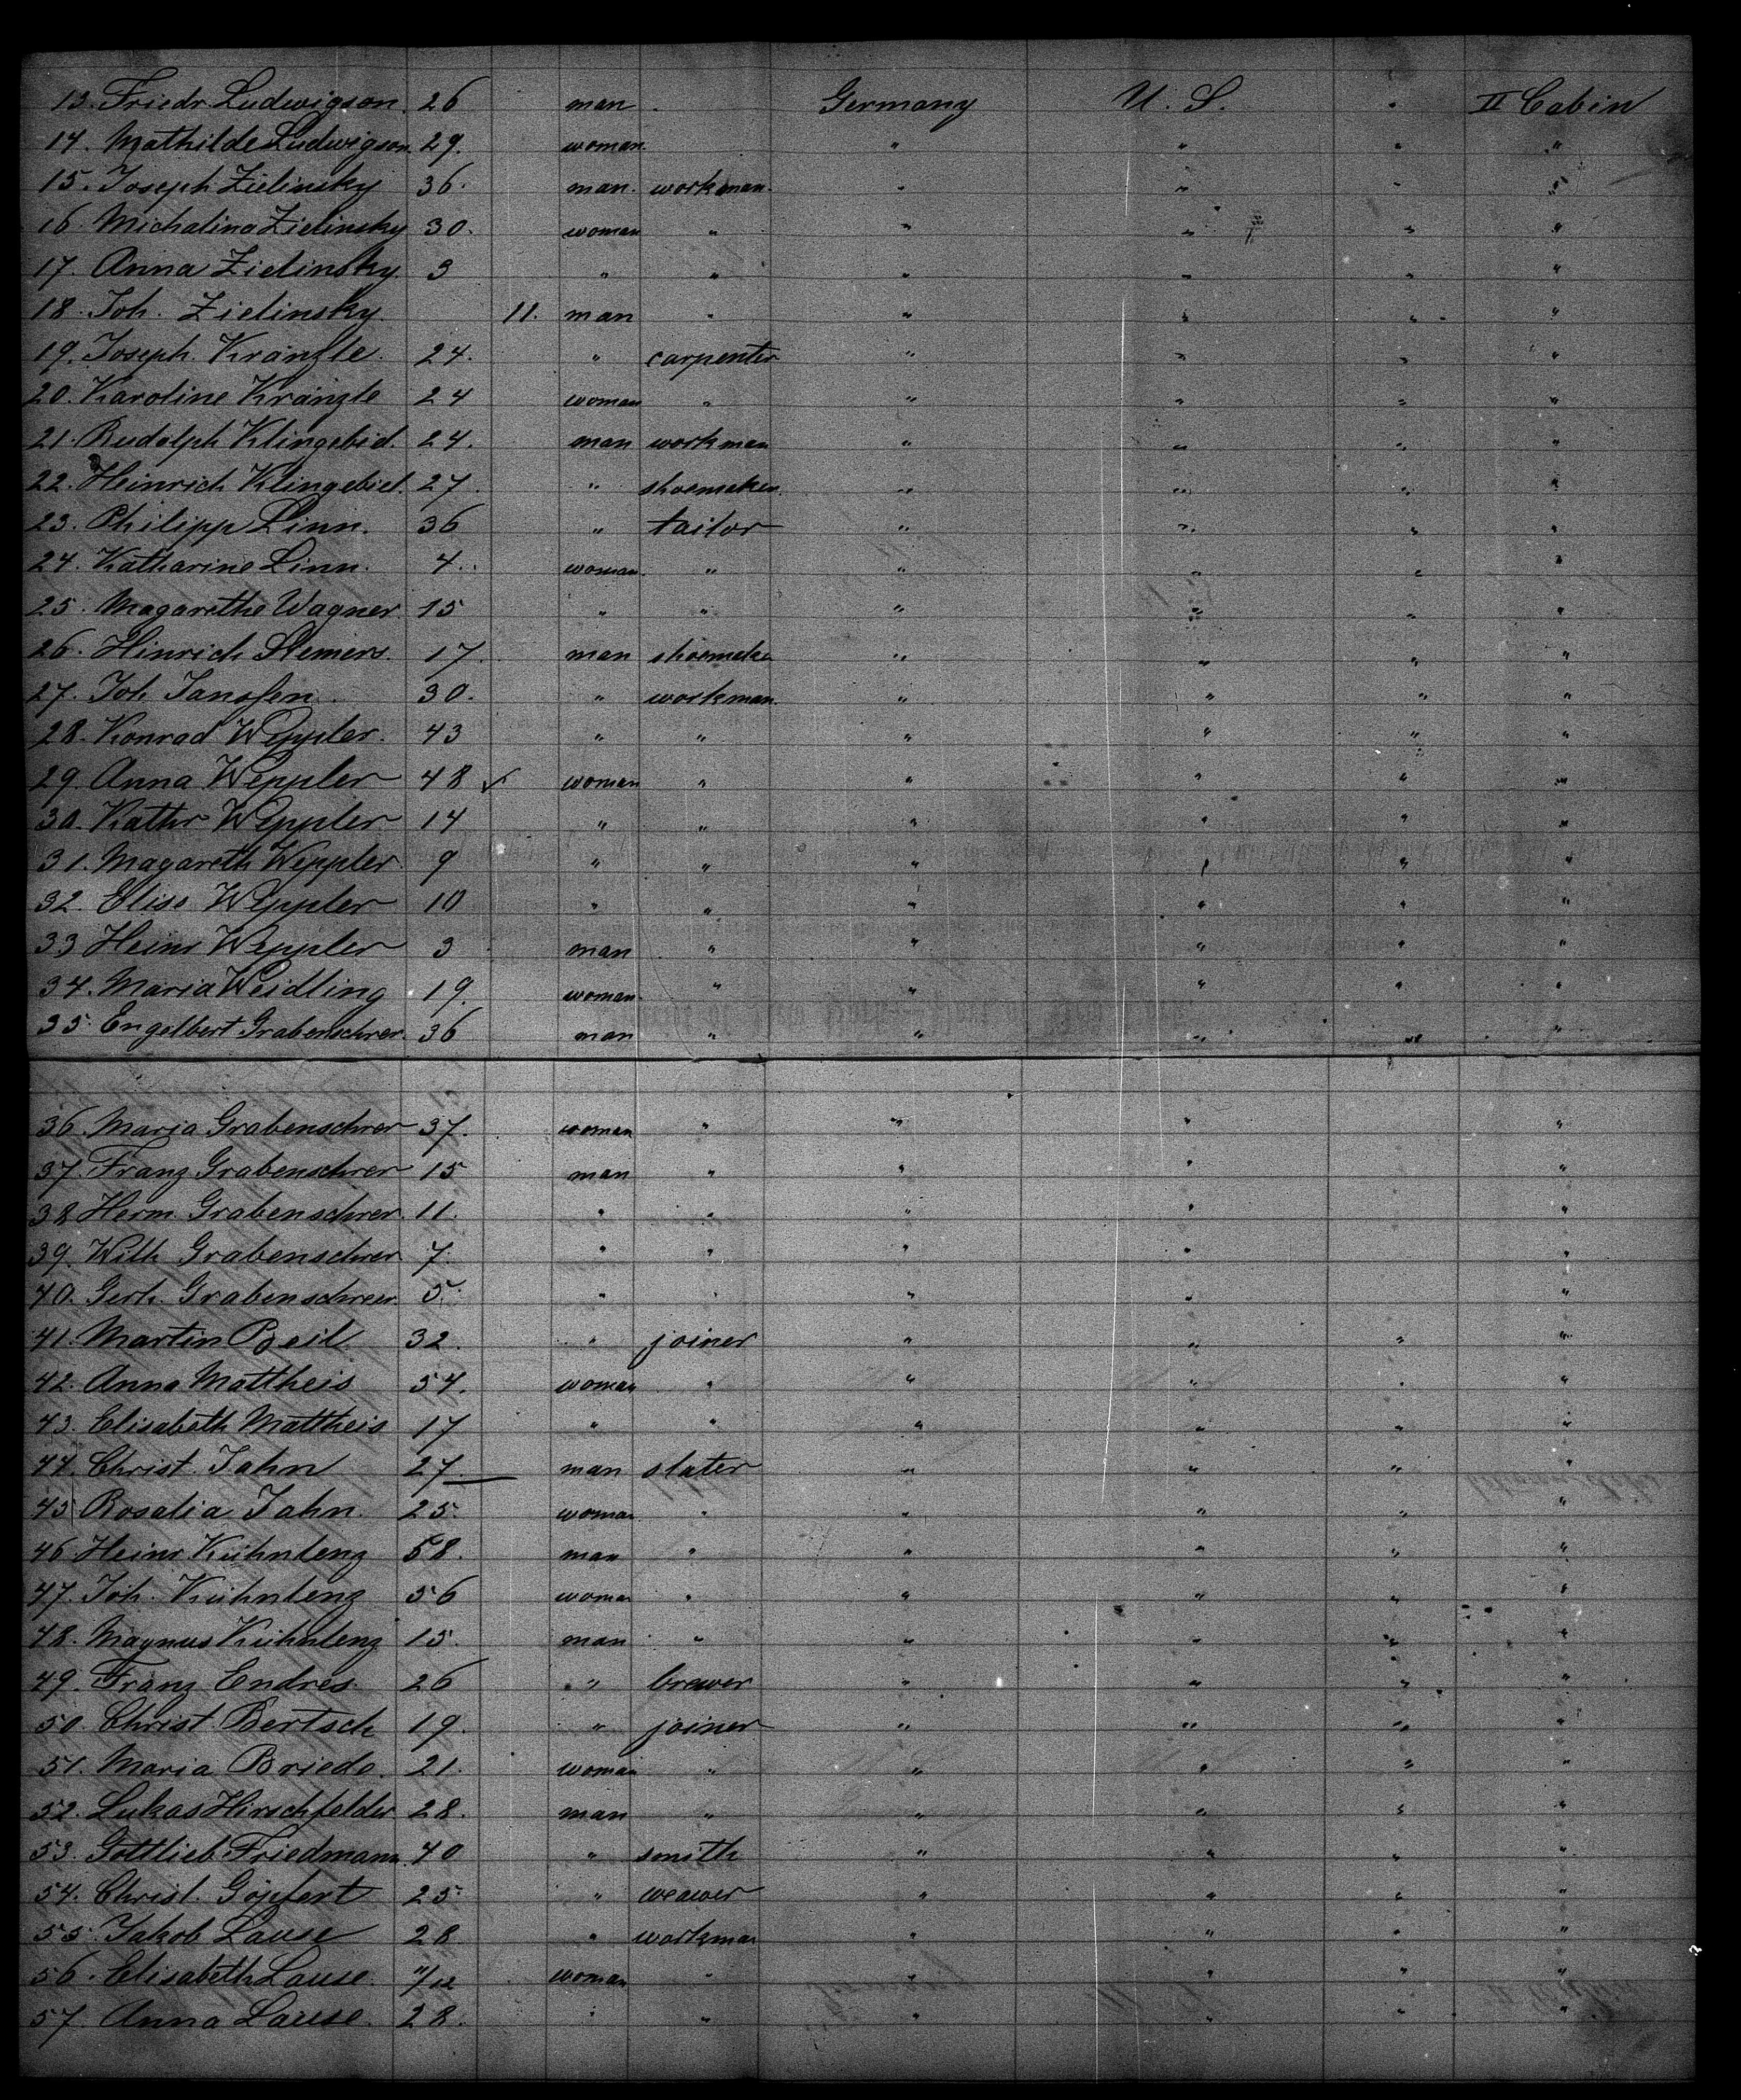 13. Friedr. Ludwigson. 26 man Germany U. S. " II Cabin
14. Mathilde Ludwigson. 29. woman " " " "
15. Joseph Zielinsky 36. man. workman. " " " "
16 Michalina Zielinsky 30. woman " " " " "
17. Anna Zielinsky. 3 " " " " " "
18. Joh. Zielinsky. 11. man " " " " "
19. Joseph Kränzle. 24. " carpenter " " " "
20. Karoline Kränzle 24 woman " " " " "
21. Rudolph Klingebiel. 24. man workman " " " "
22. Heinrich Klingebiel. 27. " shoemaker. " " " "
23. Philipp Linn. 36 " tailor " " " "
24. Katharine Linn. 4. woman. " " " " "
25. Magarethe Wagner. 15 " " " " " "
26. Hinrich Siemers. 17. man shoemaker " " " "
27. Joh Janssen. 30. " workman. " " " "
28. Konrad Weppler. 43 " " " " " "
29. Anna Weppler 48 ✓ woman " " " " "
30. Kathr Weppler 14 " " " " " "
31. Magareth Weppler. 9 " " " " " "
32. Elise Weppler 10 " " " " " "
33 Heinr Weppler 3 man " " " " "
34. Maria Weidling 19. woman " " " " "
35. Engelbert Grabenschrer. 36 man " " " " "
36. Maria Grabenschrer 37. woman " " " "
37. Franz Grabenschrer 15 man " " " "
38 Herm. Grabenschrer. 11. " " " " "
39. Wilh Grabenschrer. 7. " " " " "
40. Gerh. Grabenschrer. 5. " " " " "
41. Martin Beil 32. " joiner " " " "
42. Anna Mattheis 54. woman " " " " "
43. Elisabeth Mattheis 17 " " " " " "
44. Christ. Jahn 27. man slater " " " "
45 Rosalia Jahn. 25. woman " " " " "
46 Heinr Kühnlenz 58. man " " " " "
47. Joh. Kühnlenz 56 woman " " " " "
48. Magnus Kühnlenz 15. man " " " " "
49. Franz Endres. 26 " brewer " " " "
50. Christ. Bertsch 19. " joiner " " " "
51. Maria Briede. 21. woman " " " " "
52. Lukas Hirschfelder 28. man " " " " "
53. Gottlieb Friedmann. 40 " smith " " " "
54. Christ. Göpfert 25. " weawer " " " "
55. Jakob Lause 28 " workman " " " "
56. Elisabeth Lause. 11/12 woman " " " " "
57. Anna Lause. 28. " " " " " "